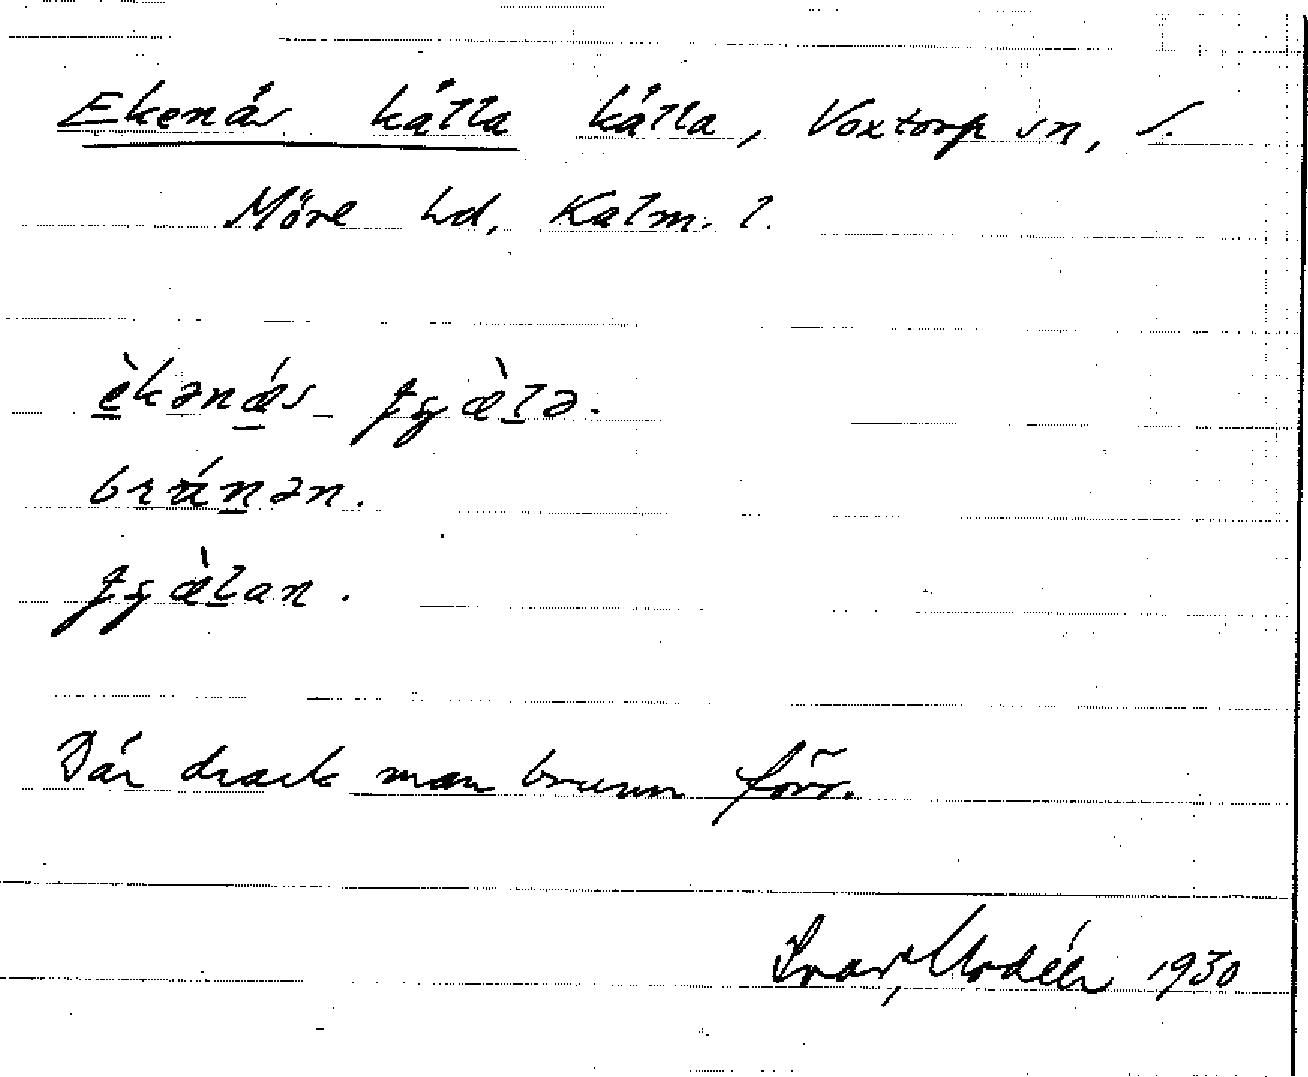 Ekenäs källa källa, Voxtorp sn, S.
Möre hd, Kalm. l.
èkənǽs
brúnən.
Där drack man brunn förr.
Ivar Modéer 1930